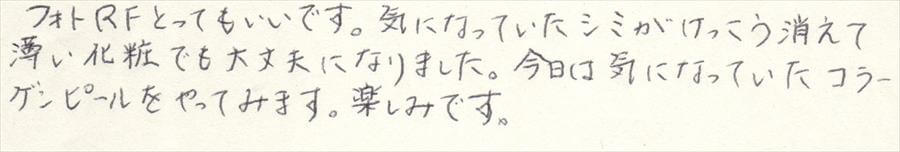 フォトRFとってもいいです。気になっていたシミがけっこう消えて
薄い化粧でも大丈夫になりました。今日は気になっていたコラー
ゲンピールをやってみます。楽しみです。